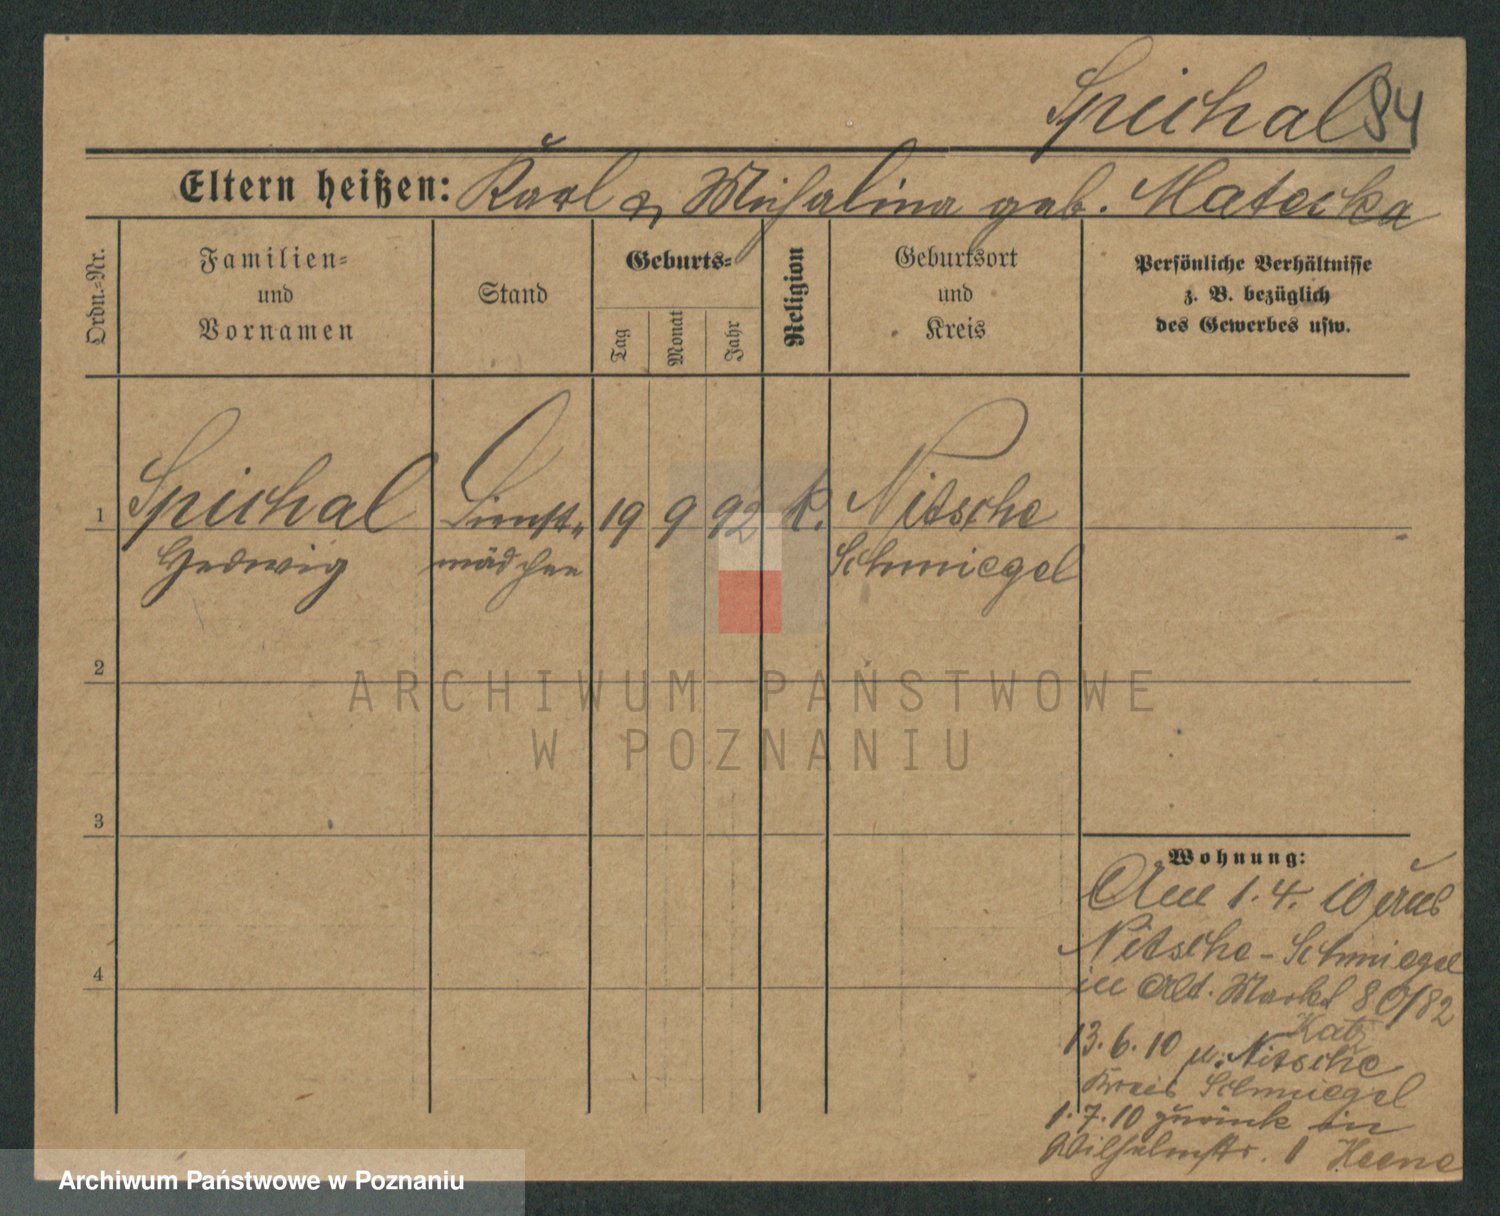 Spichal 84
Eltern heißen: Karl & Michalina geb. Matecka
Ordn.-Nr.
Familien- und Vornamen
Stand
Geburts-
Tag
Monat
Jahr
Religion
Geburtsort und Kreis
Persönliche Verhältnisse
z. B. bezüglich
des Gewerbes usw.
1 Spichal Dienst- 19 9 92 k. Nitsche
Hedwig mädchen Schmiegel
2
3
4
Wohnung:
Am 1.4.10 aus
Nitsche - Schmiegel
in Alt. Markt 80/82
Katz
13.6.10 n. Nitsche
Kreis Schmiegel
1.7.10 zurück in
Wilhelmstr. 1
ARCHIWUM PAŃSTWOWE
W POZNANIU
Archiwum Państwowe w Poznaniu